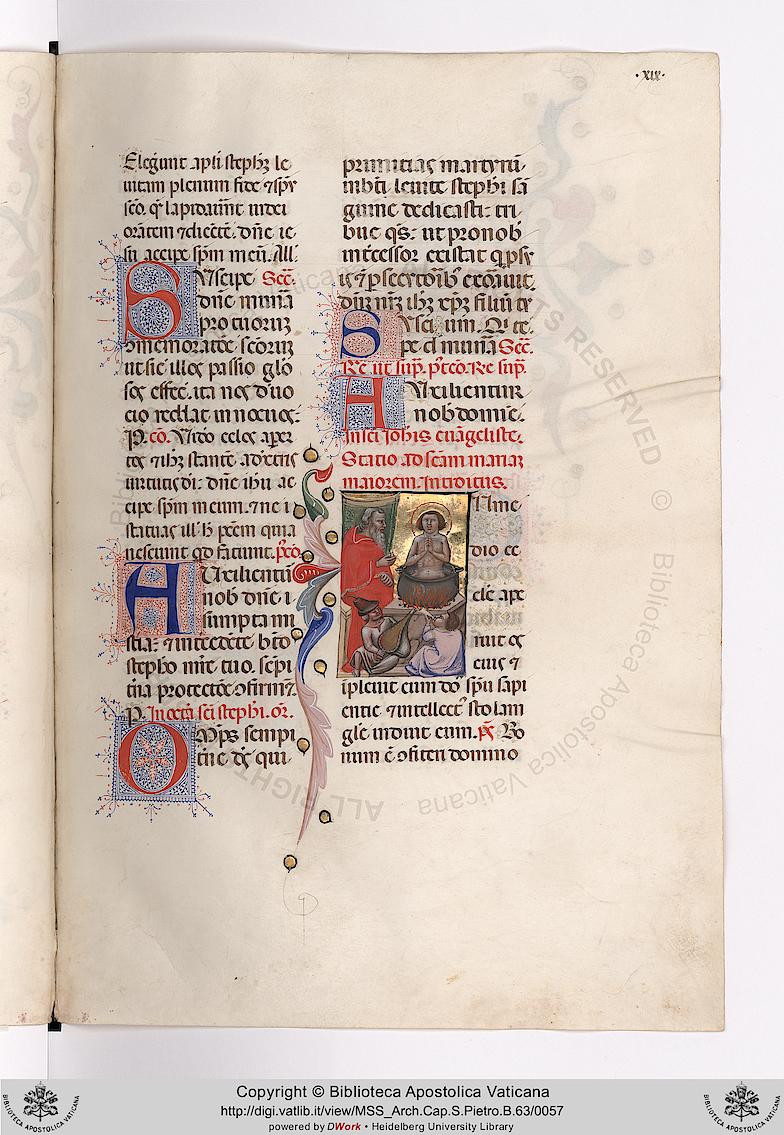 ·xix·
Elegunt apli stephz le
uitam plenum fide ⁊ spu
sco. que lapidauerunt iudei
orantem ⁊ dicente. dne ie
su accipe spm meu. All'a.
Suscipe Secr.
dne munera
pro tuorum
commemoratione scorum
ut sic illos passio glo
sos effec. ita nos deuo
cio reddat innocuos:
P. co. Video celos aper
tos ⁊ ihz stante ad dextris
uirtutis di: dne ihu ac
cipe spm meum. ⁊ ne
statuas ill' h pctm quia
nesciunt qd faciunt. p'co.
Auxilientur
nob dne
sumpta mi
steria: ⁊ intercedente bto
stepho mre tuo. sepi
terna protectione cofirmet.
P. In octa sci stephi. or.
Omps sempi
terne ds qui
primitias martyru
in bti leuite stephi sa
guine dedicasti: tri
bue qs: ut pro nob
intercessor existat q p suis
⁊ psecutorib exorauit.
dnm nrm ihz xpz filiu te
Suscipe
Secr.
Re ut sup. p'co. Re sup.
Auxilientur
nob domine.
In sci Iohis euangeliste.
Statio ad scam mariaz
maiorem. Introitus.
In me
dio ec
cle ape
ruit os
eius ⁊
ipleuit eum do' spu sapi
entie ⁊ intellect' stolam
gle induit eum. ps Bo
num e cofiteri domino
Copyright © Biblioteca Apostolica Vaticana
http://digi.vatlib.it/view/MSS_Arch.Cap.S.Pietro.B.63/0057
powered by DWork • Heidelberg University Library
BIBLIOTECA APOSTOLICA VATICANA
BIBLIOTECA APOSTOLICA VATICANA
ALL RIGHTS RESERVED © Biblioteca Apostolica Vaticana